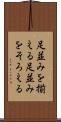 足並みを揃
える足並み
をそろえる